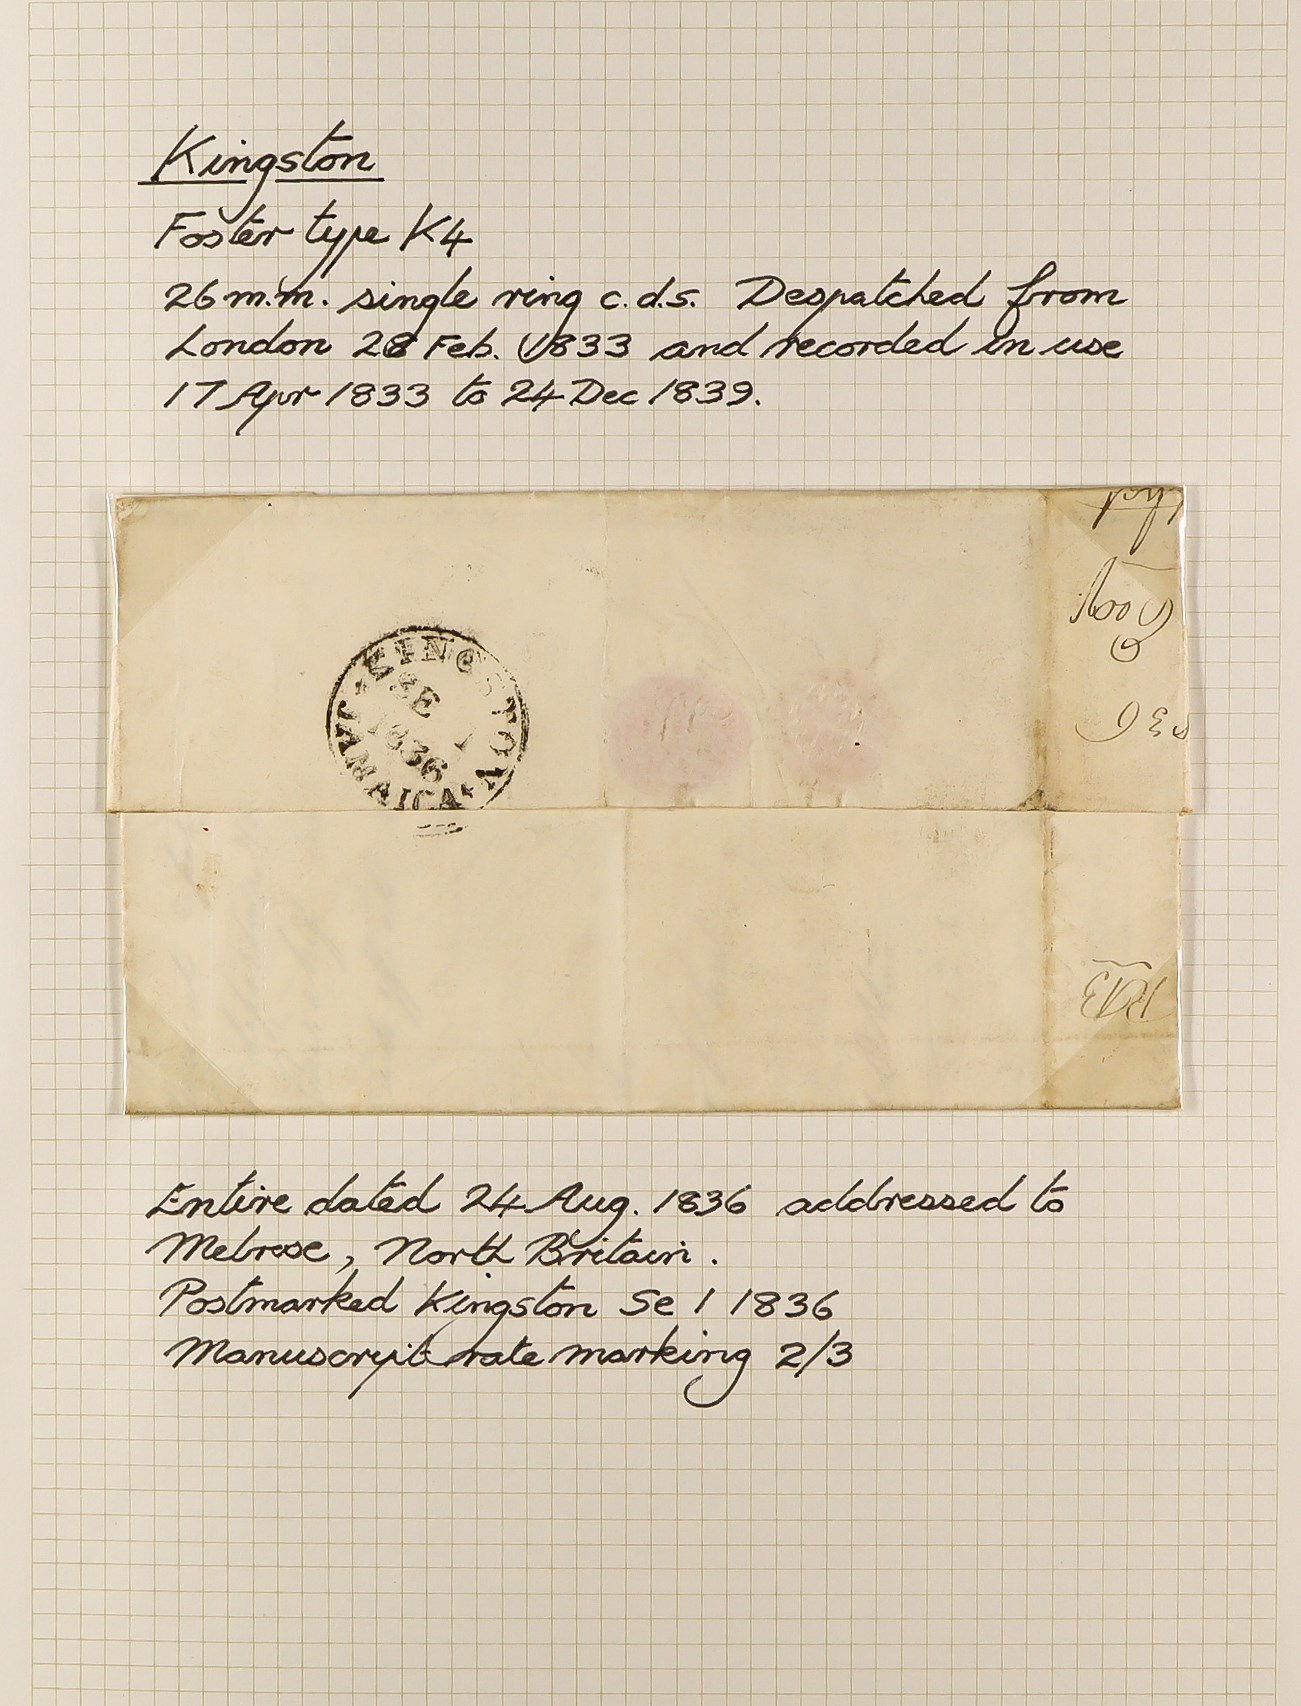 Kingston
Foster type K4
26 m.m. single ring c.d.s. Despatched from
London 28 Feb. 1833 and recorded in use
17 Apr 1833 to 24 Dec 1839.
KINGSTON
SE 1
1836
JAMAICA
Entire dated 24 Aug. 1836 addressed to
Melrose, North Britain.
Postmarked Kingston Se 1 1836
Manuscript rate marking 2/3